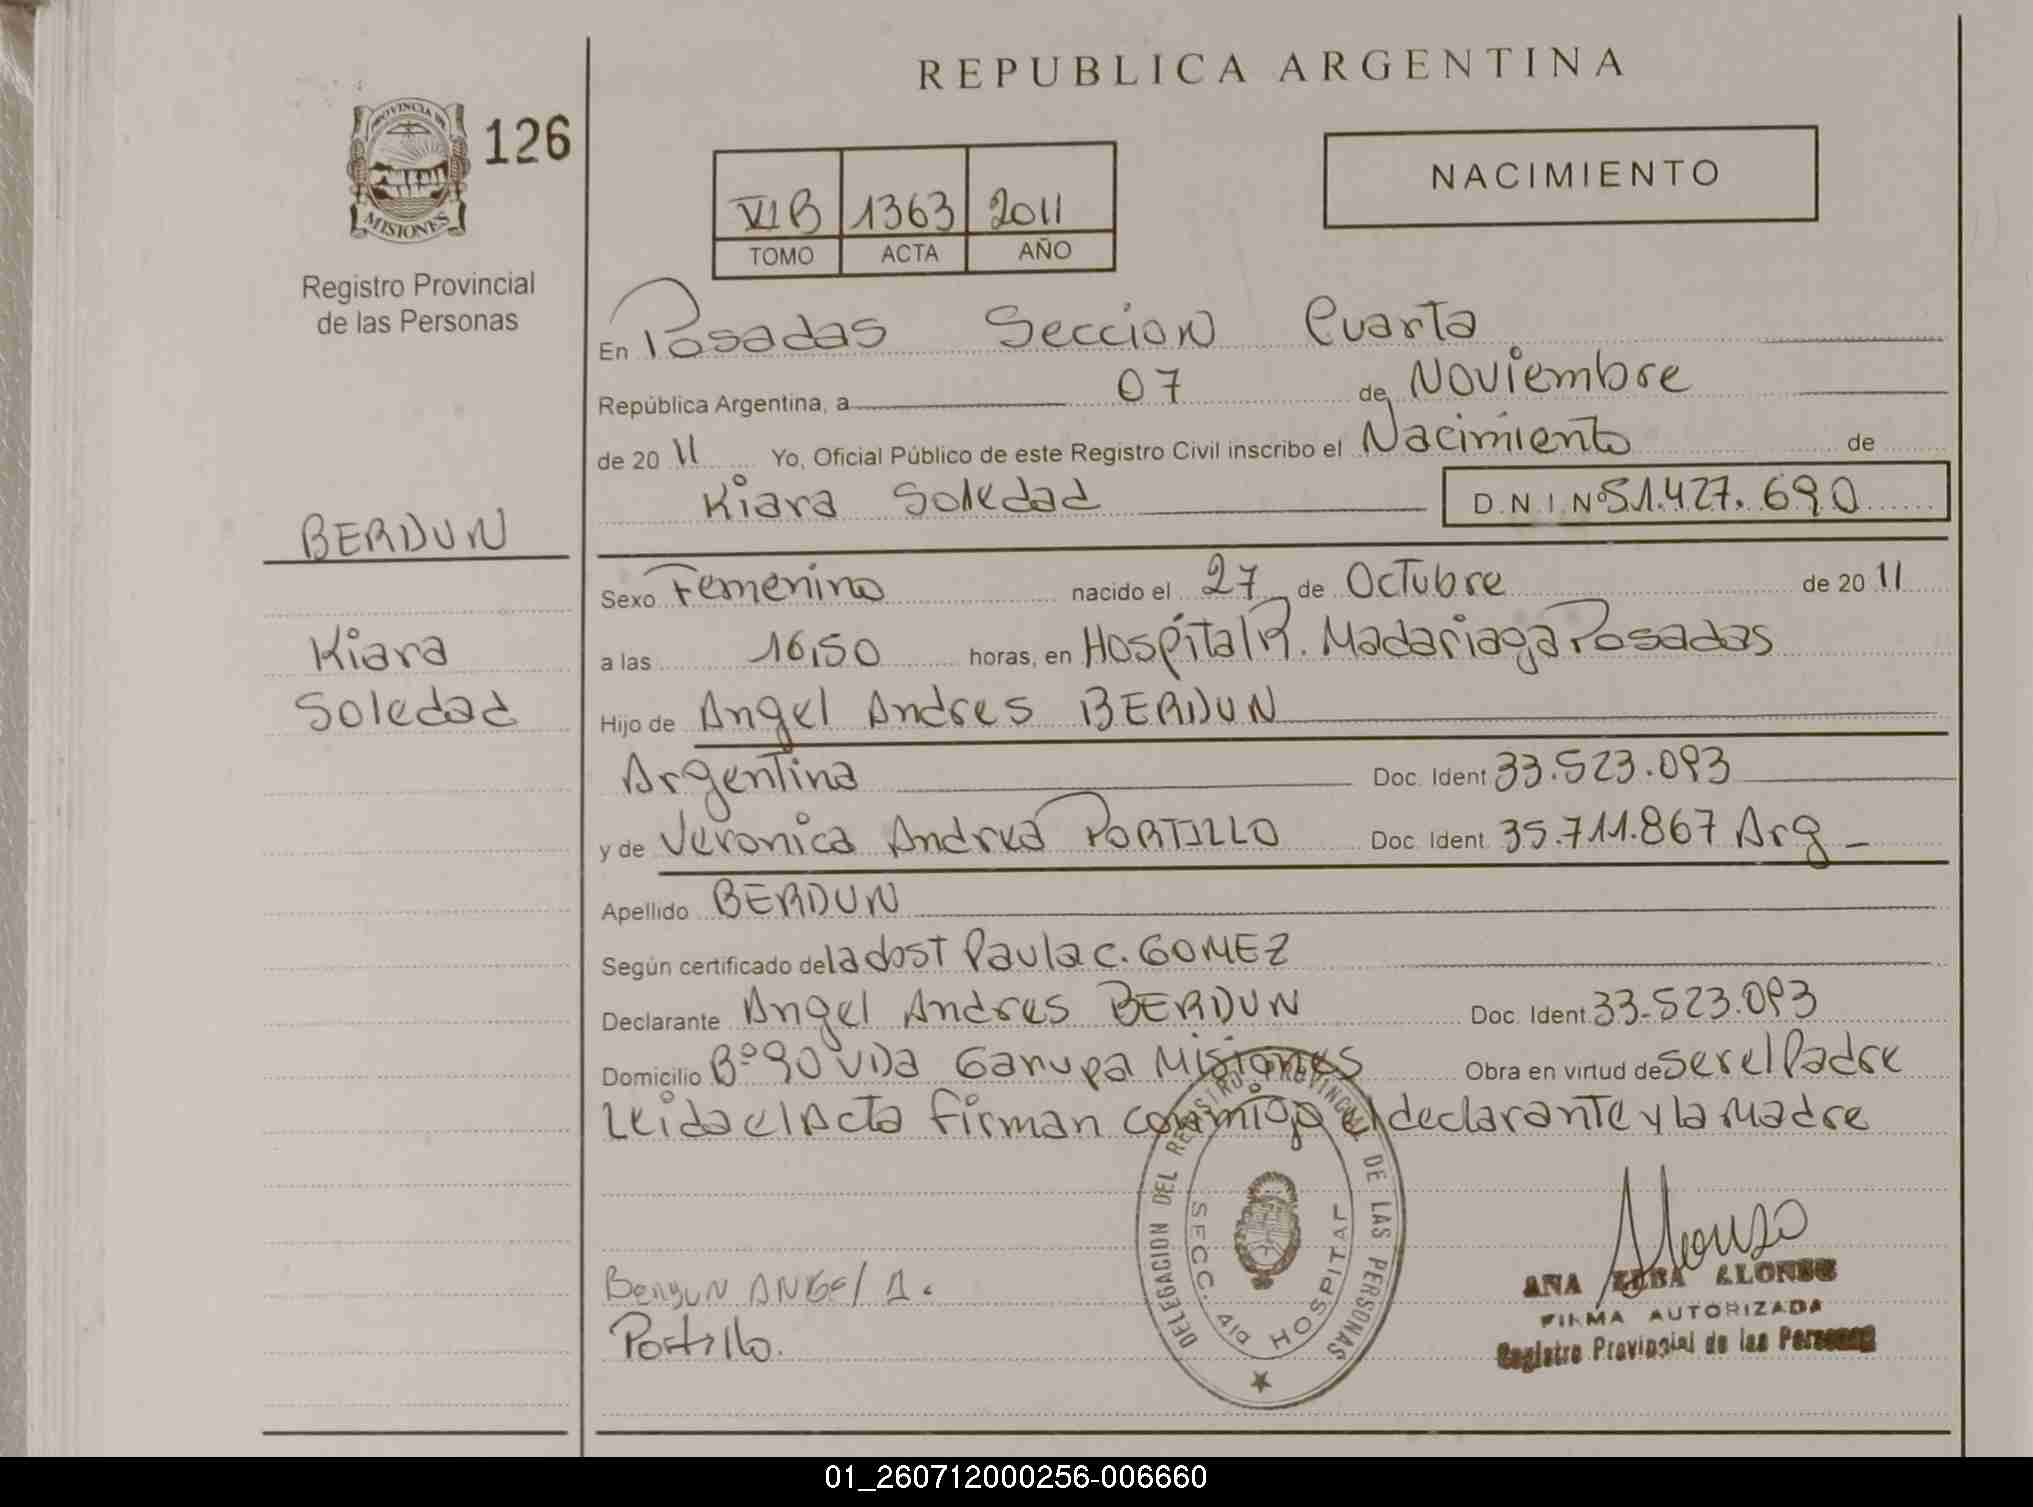 REPUBLICA ARGENTINA
PROVINCIA DE
MISIONES
126
Registro Provincial
de las Personas
VI B 1363 2011
TOMO ACTA AÑO
NACIMIENTO
En Posadas Seccion Cuarta
República Argentina, a 07 de Noviembre
de 20 11 Yo, Oficial Público de este Registro Civil inscribo el Nacimiento de
Kiara Soledad D.N.I.Nº 51.427.690
BERDUN
Kiara
Soledad
Sexo Femenino nacido el 27 de Octubre de 20 11
a las 16,50 horas, en Hospital R. Madariaga Posadas
Hijo de Angel Andres BERDUN
Argentina Doc. Ident 33.523.093
y de Veronica Andrea PORTILLO Doc. Ident. 35.711.867 Arg
Apellido BERDUN
Según certificado de la obst Paula C. GOMEZ
Declarante Angel Andres BERDUN Doc. Ident 33.523.093
Domicilio Bº 90 Vda Garupa Misiones Obra en virtud de ser el Padre
Leida el Acta firman conmigo el declarante y la madre
DELEGACION DEL REGISTRO PROVINCIAL DE LAS PERSONAS
SECC. 4ta HOSPITAL
Berdun ANGEl A.
Portillo.
Alonso
ANA ELBA ALONSO
FIRMA AUTORIZADA
Registro Provincial de las Personas
01_260712000256-006660